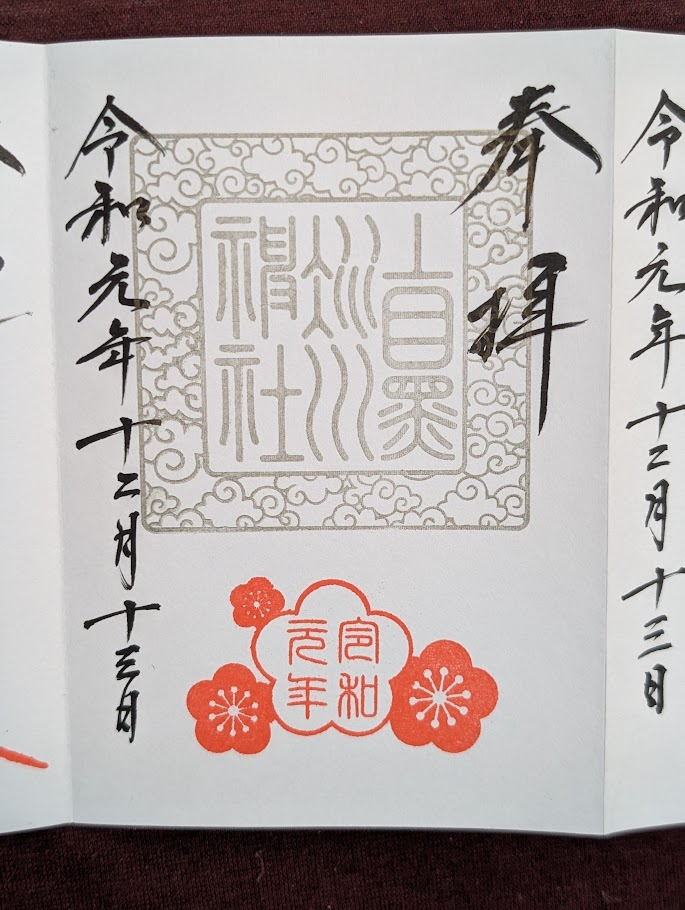 令和元年十二月十三日
奉拝
上目黒
氷川
神社
令和
元年
令和元年十二月十三日